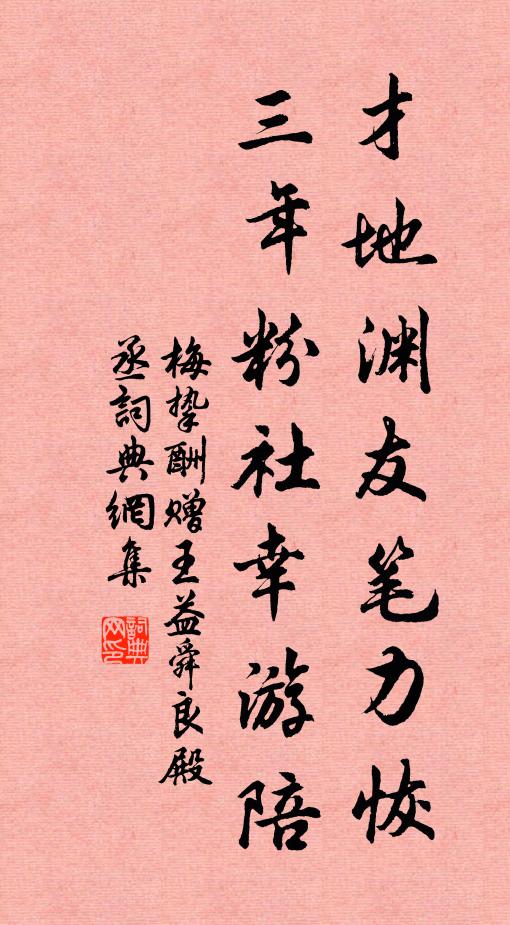 才地渊友笔力恢
三年粉社幸游陪
梅挚酬赠王益舜良殿
丞詞典網集
詞典网印